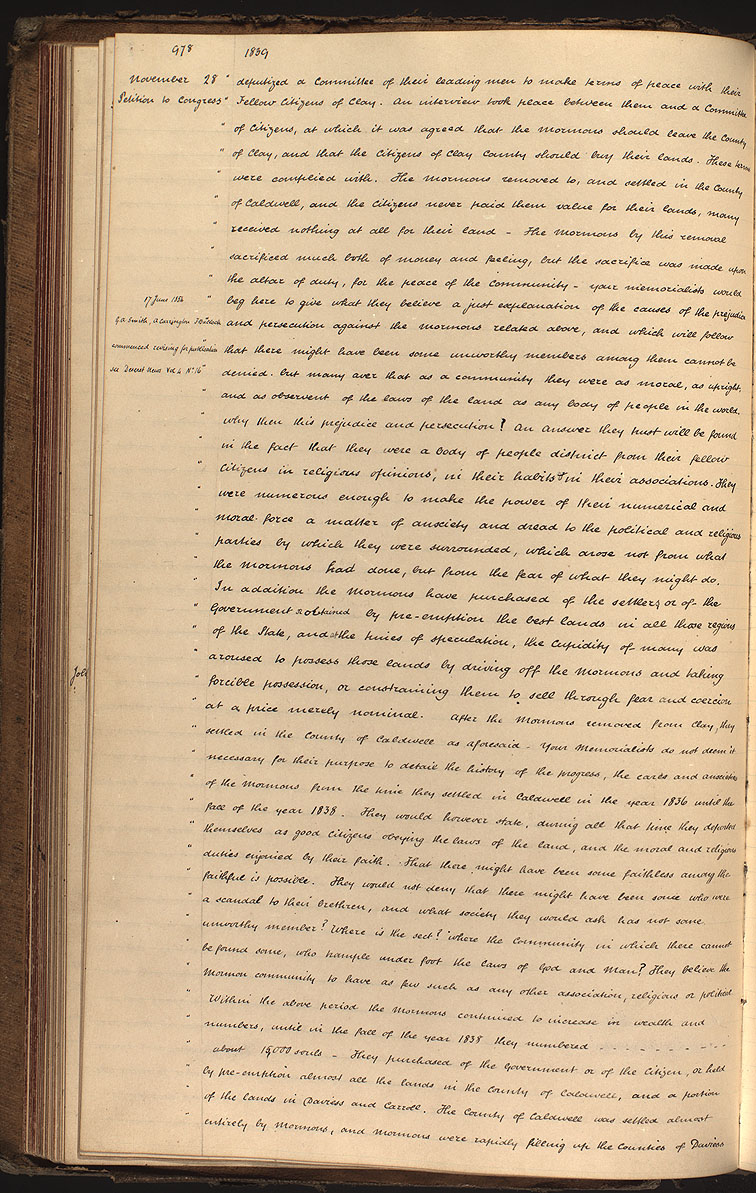 978 1839
November 28 " deputized a Committee of their leading men to make terms of peace with their
Petition to Congress " Fellow Citizens of Clay. An interview took place between them and a Committee
" of Citizens, at which it was agreed that the Mormons should leave the County
" of Clay, and that the Citizens of Clay County should buy their lands. These terms
" were complied with. The Mormons removed to, and settled in the County
" of Caldwell, and the Citizens never paid them value for their lands, many
" received nothing at all for their land – The Mormons by this removal
" sacrificed much both of money and feeling, but the sacrifice was made upon
" the altar of duty, for the peace of the Community – your memorialists would
17 June 1854 " beg here to give what they believe a just explanation of the causes of the prejudice
G A Smith, A Carrington " and persecution against the Mormons related above, and which will follow
commenced revising for publication " that there might have been some unworthy members among them cannot be
see Deseret News Vol 4 No 16 " denied. but many aver that as a community they were as moral, as upright,
" and as observent of the laws of the land as any body of people in the world.
" why then this prejudice and persecution? An answer they trust will be found
" in the fact that they were a body of people district from their fellow
" Citizens in religious opinions, in their habits & in their associations. They
" were numerous enough to make the power of their numerical and
" moral force a matter of anxiety and dread to the political and religious
" parties by which they were surrounded, which arose not from what
" the Mormons had done, but from the fear of what they might do.
" In addition the Mormons have purchased of the settlers or of the
" Government & obtained by pre-emption the best lands in all those regions
" of the State, and at the times of speculation, the cupidity of many was
" aroused to possess those lands by driving off the Mormons and taking
" forcible possession, or constraining them to sell through fear and coercion
" at a price merely nominal. After the Mormons removed from Clay, they
" settled in the County of Caldwell as aforesaid – Your Memorialists do not deem it
" necessary for their purpose to detail the history of the progress, the cares and anxieties
" of the Mormons from the time they settled in Caldwell in the year 1836 until the
" fall of the year 1838. They would however state, during all that time they deported
" themselves as good citizens obeying the laws of the land, and the moral and religious
" duties enjoined by their faith. That there might have been some faithless among the
" faithful is possible. They would not deny that there might have been some who were
" a scandal to their brethren, and what society they would ask has not some
" unworthy member? Where is the sect? where the community in which there cannot
" be found some, who trample under foot the laws of God and Man? They believe the
" Mormon community to have as few such as any other association, religious or political
" Within the above period the Mormons continued to increase in wealth and
" numbers, until in the fall of the year 1838 they numbered
" about 15,000 souls – They purchased of the Government or of the Citizen, or held
" by pre-emption almost all the lands in the County of Caldwell, and a portion
" of the lands in Daviess and Carroll. The County of Caldwell was settled almost
" entirely by Mormons, and Mormons were rapidly filling up the Counties of Daviess